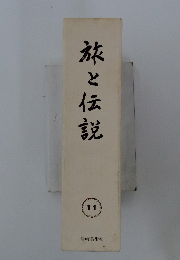 旅と伝説
11